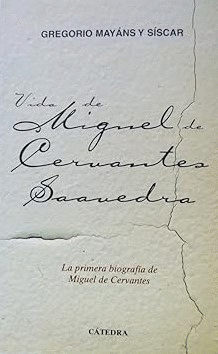 GREGORIO MAYÁNS Y SÍSCAR
Vida de
Miguel de
Cervantes
Saavedra
La primera biografía de
Miguel de Cervantes
CÁTEDRA